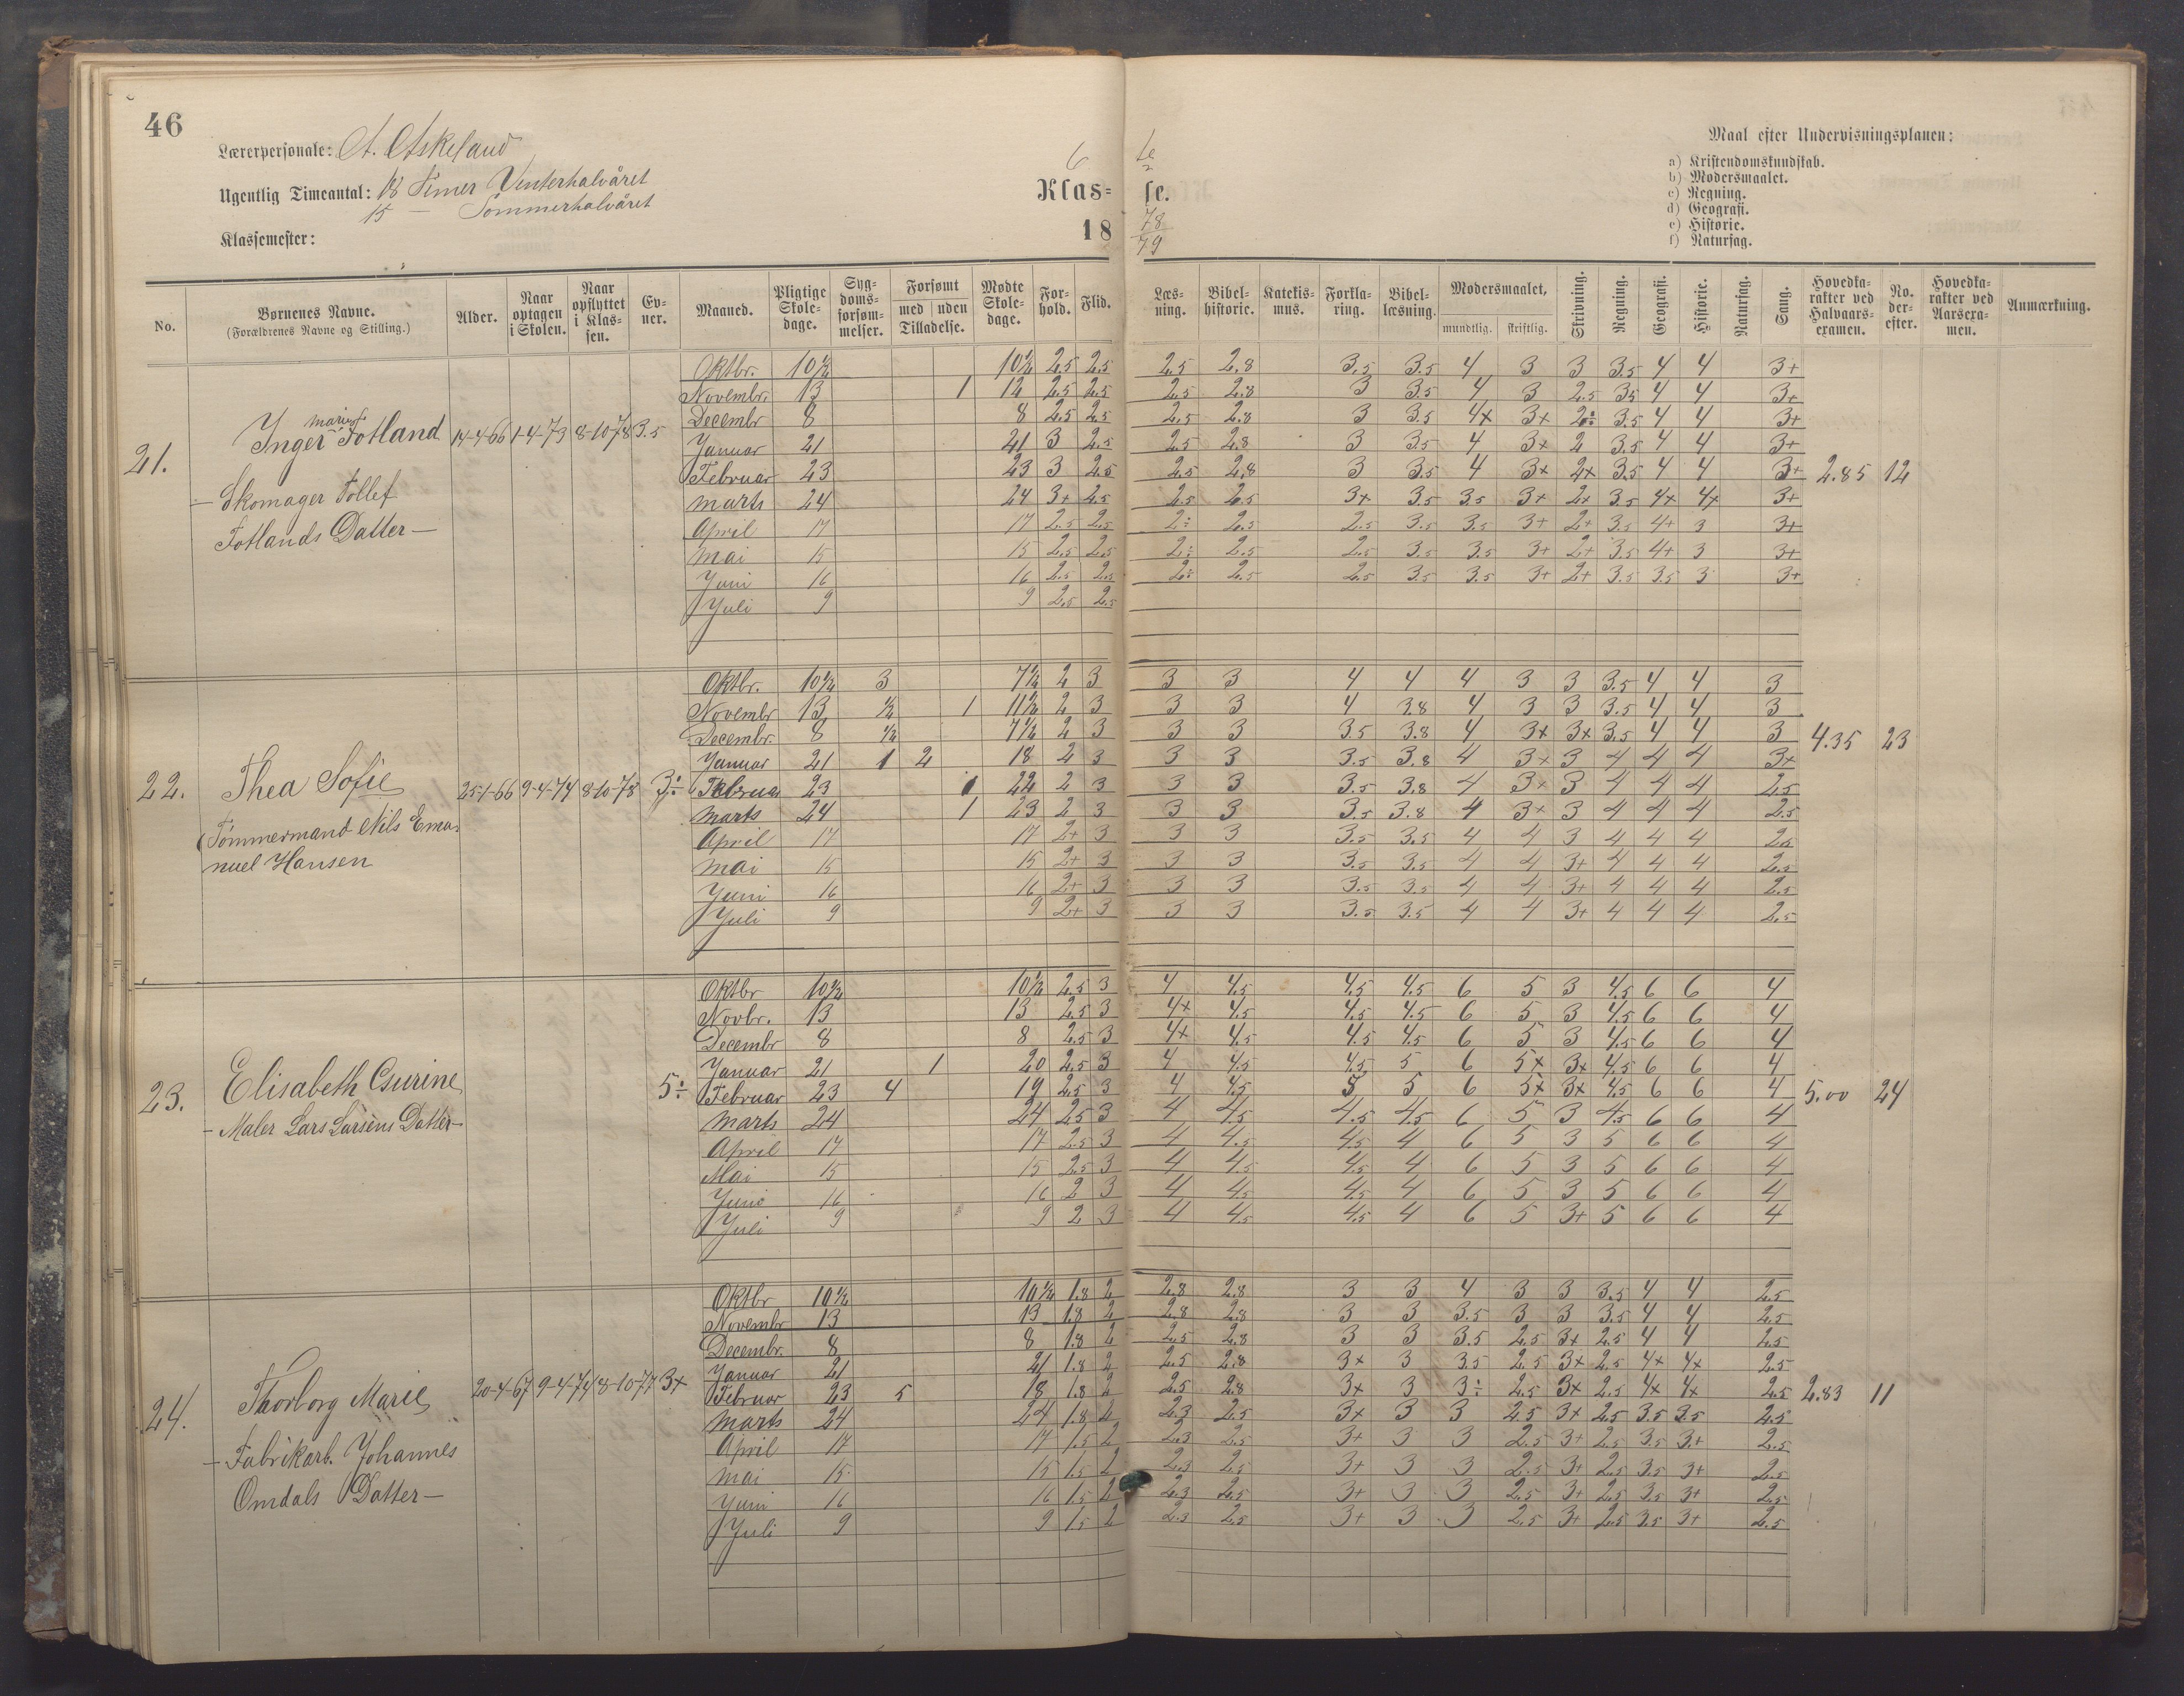 46
Lærerpersonale: A. Askeland
Ugentlig Timeantal: 18 Timer Vinterhalvåret
15 — Sommerhalvåret
Klassemester:
6 te
Klas- se.
18 78/79
Maal efter Undervisningsplanen:
a) Kristendomskundskab.
b) Modersmaalet.
c) Regning.
d) Geografi.
e) Historie.
f) Naturfag.
No. | Børnenes Navne. (Forældrenes Navne og Stilling.) | Alder. | Naar optagen i Skolen. | Naar opflyttet i Klassen. | Evner. | Maaned. | Pligtige Skoledage. | Sygdomsforsømmelser. | Forsømt med uden Tilladelse. | Mødte Skoledage. | Forhold. | Flid. | Læsning. | Bibelhistorie. | Katekismus. | Forklaring. | Bibellæsning. | Modersmaalet, mundtlig. skriftlig. | Skrivning. | Regning. | Geografi. | Historie. | Naturfag. | Sang. | Hovedkarakter ved Halvaarsexamen. | No. derefter. | Hovedkarakter ved Aarsexamen. | Anmærkning.
21. Inger Marie Fotland 14-4-66 1-4-73 8-10-78 3.5
— Skomager Tollef
Fotlands Datter —
2.85 12
Oktbr. 10½ 10½ 2.5 2.5 2.5 2.8 3.5 3.5 4 3 3 3.5 4 4 3+
Novembr. 13 1 12 2.5 2.5 2.5 2.8 3 3.5 4 3 2.5 3.5 4 4 3+
Decembr 8 8 2.5 2.5 2.5 2.8 3 3.5 4x 3x 2÷ 3.5 4 4 3+
Januar 21 21 3 2.5 2.5 2.8 3 3.5 4 3x 2 3.5 4 4 3+
Februar 23 23 3 2.5 2.5 2.8 3 3.5 4 3x 2x 3.5 4 4 3+
Marts 24 24 3+ 2.5 2.5 2.5 3x 3.5 3.5 3+ 2x 3.5 4x 4x 3+
April 17 17 2.5 2.5 2÷ 2.5 2.5 3.5 3.5 3+ 2+ 3.5 4+ 3 3+
Mai 15 15 2.5 2.5 2÷ 2.5 2.5 3.5 3.5 3+ 2+ 3.5 4+ 3 3+
Juni 16 16 2.5 2.5 2÷ 2.5 2.5 3.5 3.5 3+ 2+ 3.5 3.5 3 3+
Juli 9 9 2.5 2.5
22. Thea Sofie 25-1-66 9-4-74 8-10-78 3÷
(Tømmermand Nils Ema-
nuel Hansen
4.35 23
Oktbr. 10½ 3 7½ 2 3 3 3 4 4 4 3 3 3.5 4 4 3
Novembr 13 ½ 1 11½ 2 3 3 3 4 3.8 4 3 3 3.5 4 4 3
Decembr. 8 ½ 7½ 2 3 3 3 3.5 3.8 4 3x 3x 3.5 4 4 3
Januar 21 1 2 18 2 3 3 3 3.5 3.8 4 3x 3 4 4 4 3x
Februar 23 1 22 2 3 3 3 3.5 3.8 4 3x 3 4 4 4 2.5
Marts 24 1 23 2 3 3 3 3.5 3.8 4 3x 3 4 4 4 2.5
April 17 17 2+ 3 3 3 3.5 3.5 4 4 3 4 4 4 2.5
Mai 15 15 2+ 3 3 3 3.5 3.5 4 4 3+ 4 4 4 2.5
Juni 16 16 2+ 3 3 3 3.5 3.5 4 4 3+ 4 4 4 2.5
Juli 9 9 2+ 3 3 3 3.5 3.5 4 4 3+ 4 4 4 2.5
23. Elisabeth Gurine 5÷
— Maler Lars Larsens Datter —
5.00 24
Oktbr 10½ 10½ 2.5 3 4 4.5 4.5 4.5 6 5 3 4.5 6 6 4
Novbr. 13 13 2.5 3 4x 4.5 4.5 4.5 6 5 3 4.5 6 6 4
Decembr 8 8 2.5 3 4x 4.5 4.5 4.5 6 5 3 4.5 6 6 4
Januar 21 1 20 2.5 3 4 4.5 4.5 5 6 5x 3x 4.5 6 6 4
Februar 23 4 19 2.5 3 4 4.5 5 5 6 5x 3x 4.5 6 6 4
Marts 24 24 2.5 3 4 4.5 4.5 4.5 6 5 3 4.5 6 6 4
April 17 17 2.5 3 4 4.5 4.5 4 6 5 3 5 6 6 4
Mai 15 15 2.5 3 4 4.5 4.5 4 6 5 3 5 6 6 4
Juni 16 16 2 3 4 4.5 4.5 4 6 5 3 5 6 6 4
Juli 9 9 2 3 4 4.5 4.5 4 6 5 3+ 5 6 6 4
24. Thorborg Marie 20-4-67 9-4-74 8-10-77 3x
— Fabrikarb. Johannes
Omdals Datter —
2.83 11
Oktbr 10½ 10½ 1.8 2 2.8 2.8 3 3 4 3 3 3.5 4 4 2.5
Novembr 13 13 1.8 2 2.8 2.8 3 3 3.5 3 3 3.5 4 4 2.5
Decembr. 8 8 1.8 2 2.5 2.8 3 3 3.5 2.5 3x 2.5 4 4 2.5
Januar 21 21 1.8 2 2.5 2.8 3x 3 3.5 2.5 3x 2.5 4x 4x 2.5
Februar 23 5 18 1.8 2 2.5 2.8 3x 3 3÷ 2.5 3x 2.5 4x 4x 2.5
Marts 24 24 1.8 2 2.3 2.5 3x 3 3 2.5 3x 2.5 3.5 3.5 2.5
April 17 17 1.5 2 2.3 2.5 3+ 3 3 2.5 3+ 2.5 3.5 3+ 2.5
Mai 15 15 1.5 2 2.3 2.5 3+ 3 3 2.5 3+ 2.5 3.5 3+ 2.5
Juni 16 16 1.5 2 2.3 2.5 3+ 3 3 2.5 3+ 2.5 3.5 3+ 2.5
Juli 9 9 1.5 2 2.3 2.5 3+ 3 3 2.5 3+ 2.5 3.5 3+ 2.5